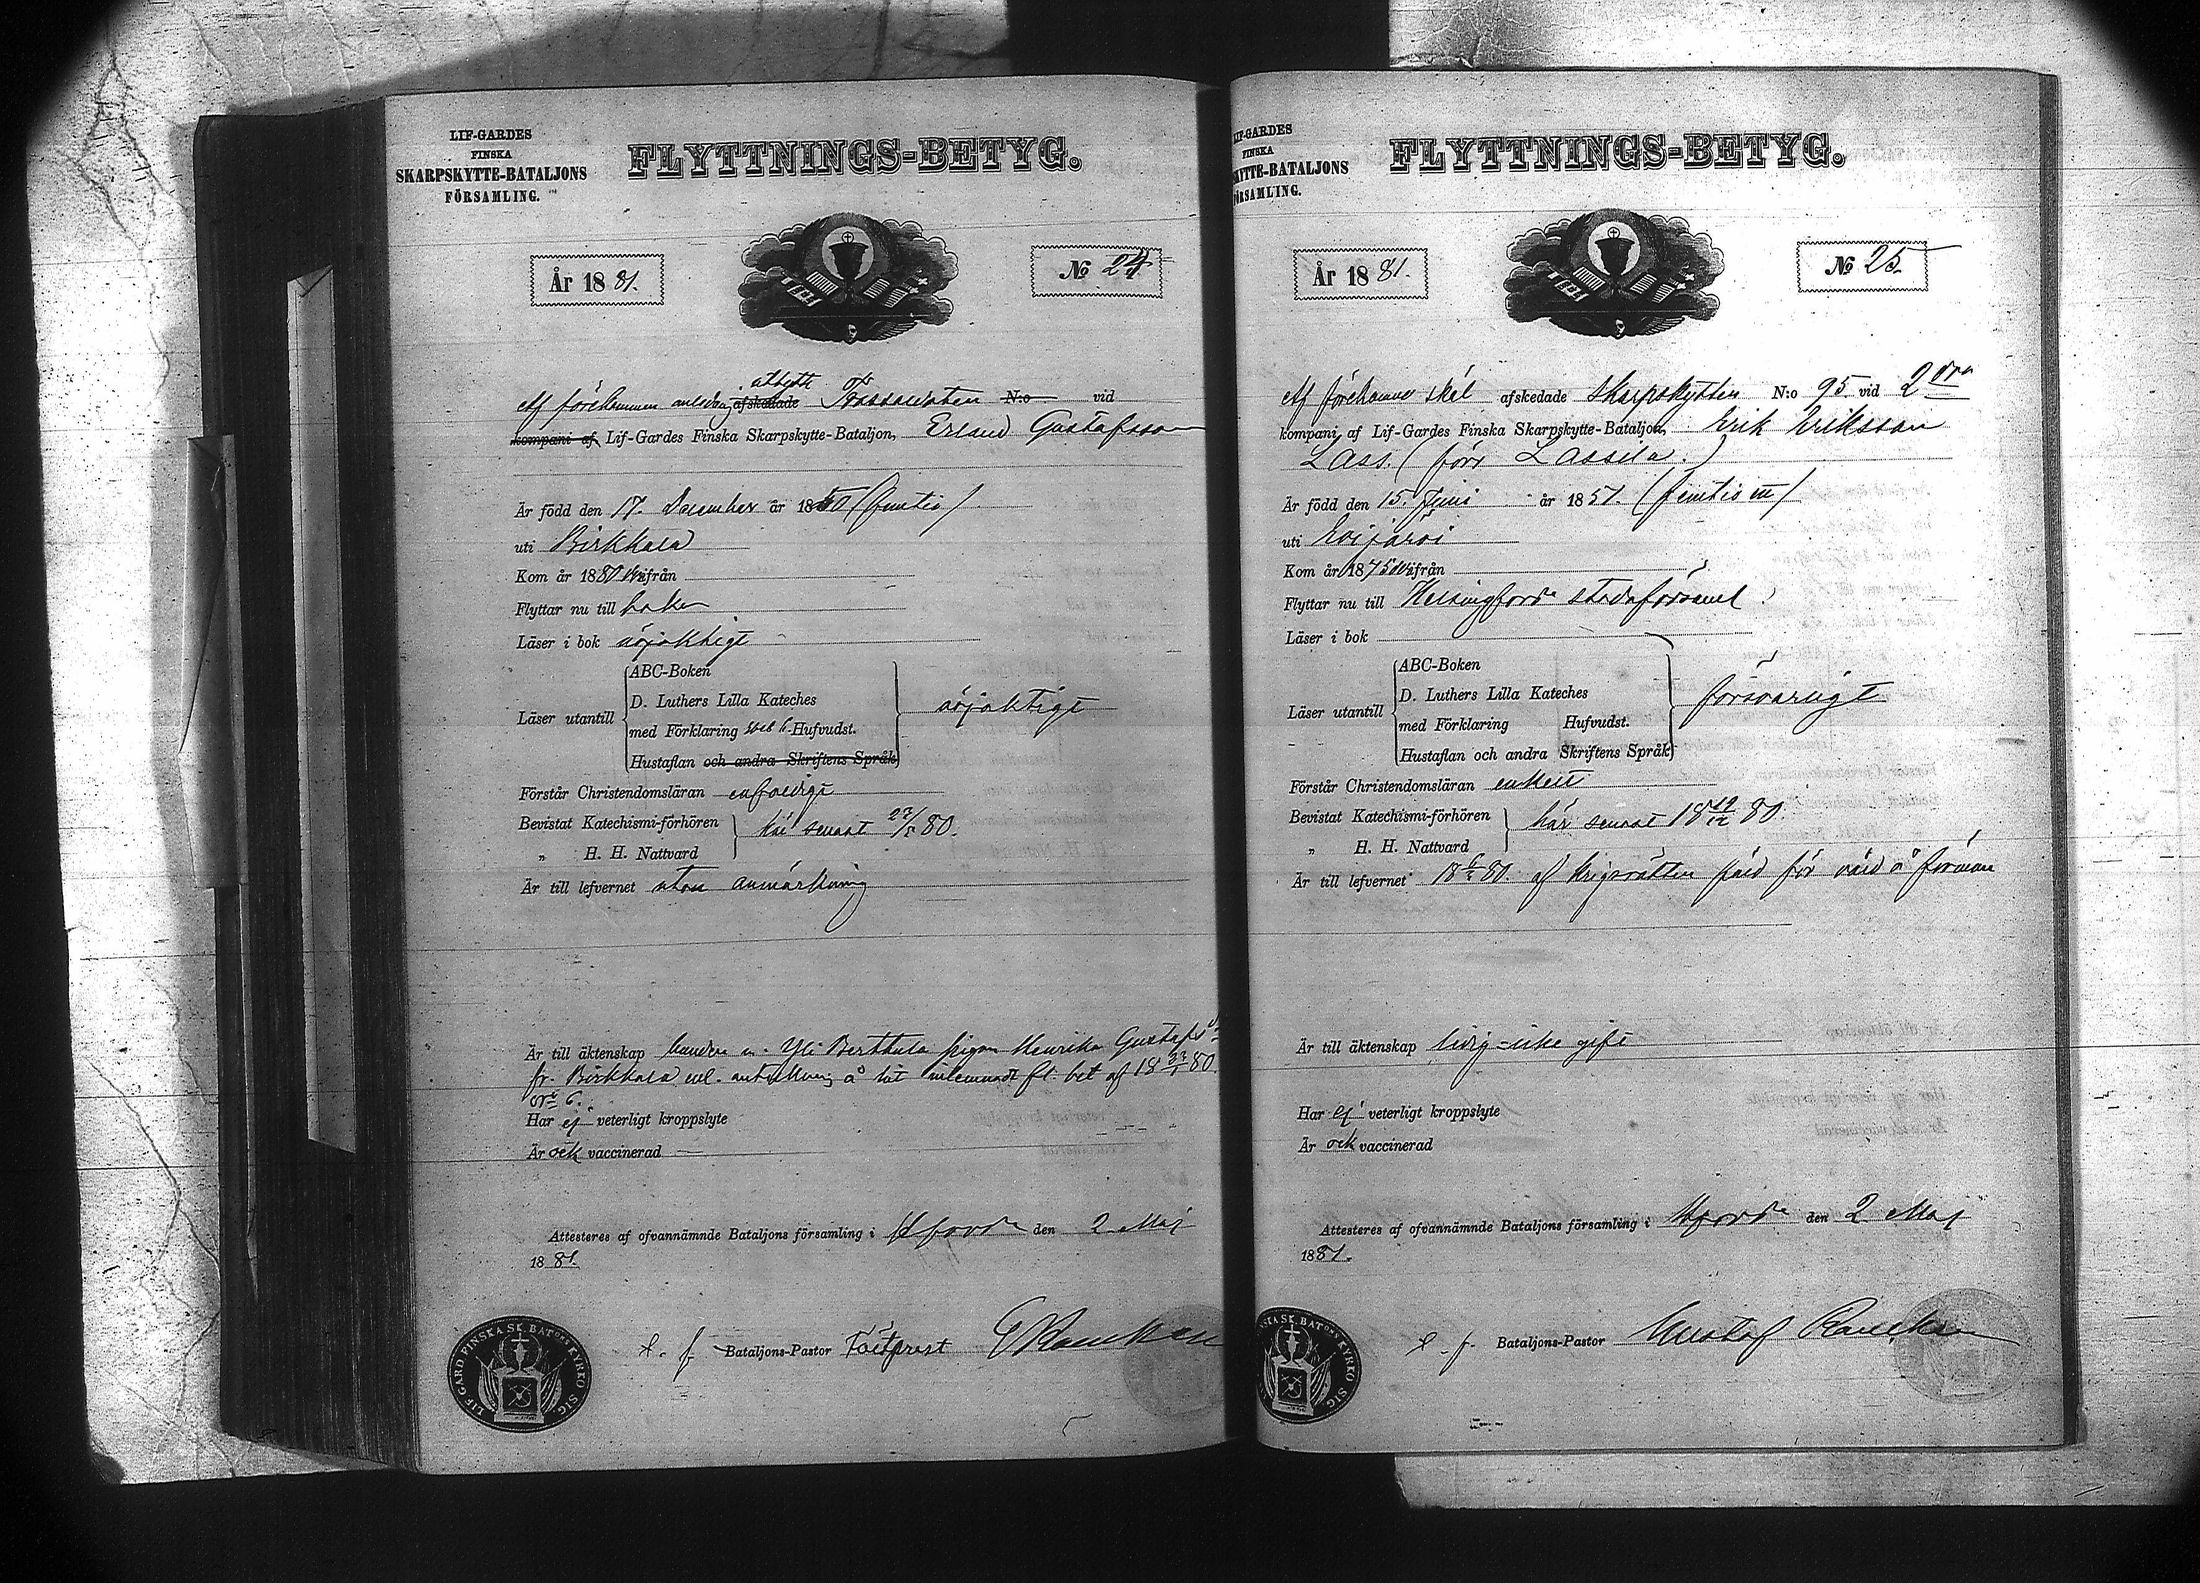 LIF-GARDES
FINSKA
SKARPSKYTTE-BATALJONS
FÖRSAMLING.
FLYTTNINGS-BETYG.
År 1881.
№ 24
Af förekommen anledning afskedade Trossoldaten N:o vid
kompani af Lif-Gardes Finska Skarpskytte-Bataljon, Erland Gustafsson
Är född den 17. December år 1850 (femtio)
uti Birkkala
Kom år 1880 från
Flyttar nu till
Läser i bok nöjaktigt
Läser utantill
ABC-Boken
D. Luthers Lilla Kateches
med Förklaring Hufvudst.
Hustaflan och andra Skriftens Språk
nöjaktigt
Förstår Christendomsläran enfaldigt
Bevistat Katechismi-förhören
„ H. H. Nattvard
här senast 80.
Är till lefvernet utan anmärkning
Är till äktenskap m. Yli Berttula pigan Henrika Gustafsd:r
fr. Birkkala fl. bet af 18 80
No 6.
Har ej veterligt kroppslyte
Är ock vaccinerad
Attesteras af ofvannämnde Bataljons församling i Hfors den 2 Maj
1881.
Bataljons-Pastor
LIF-GARD FINSKA SK. BAT:ONS KYRKO SIG.
LIF-GARDES
FINSKA
SKYTTE-BATALJONS
FÖRSAMLING.
FLYTTNINGS-BETYG.
År 1881.
№ 25
Af förekomne skäl afskedade Skarpskytten N:o 95 vid 2dra
kompani af Lif-Gardes Finska Skarpskytte-Bataljon, Erik Eriksson
Lass. (förr Lassila.)
Är född den 15. Juni år 1851. (femtio en)
uti Evijärvi
Kom år 1875 från
Flyttar nu till Helsingfors stadsförsaml.
Läser i bok
Läser utantill
ABC-Boken
D. Luthers Lilla Kateches
med Förklaring Hufvudst.
Hustaflan och andra Skriftens Språk
försvarligt
Förstår Christendomsläran enkelt
Bevistat Katechismi-förhören
„ H. H. Nattvard
här senast 18 19/12 80.
Är till lefvernet 18 80. af krigsrätten för våld å förman
Är till äktenskap ledig = icke gift
Har ej veterligt kroppslyte
Är ock vaccinerad
Attesteras af ofvannämnde Bataljons församling i Hfors den 2 Maj
1881.
Bataljons-Pastor Gustaf
SKA SK. BAT:ONS KYRKO SIG.